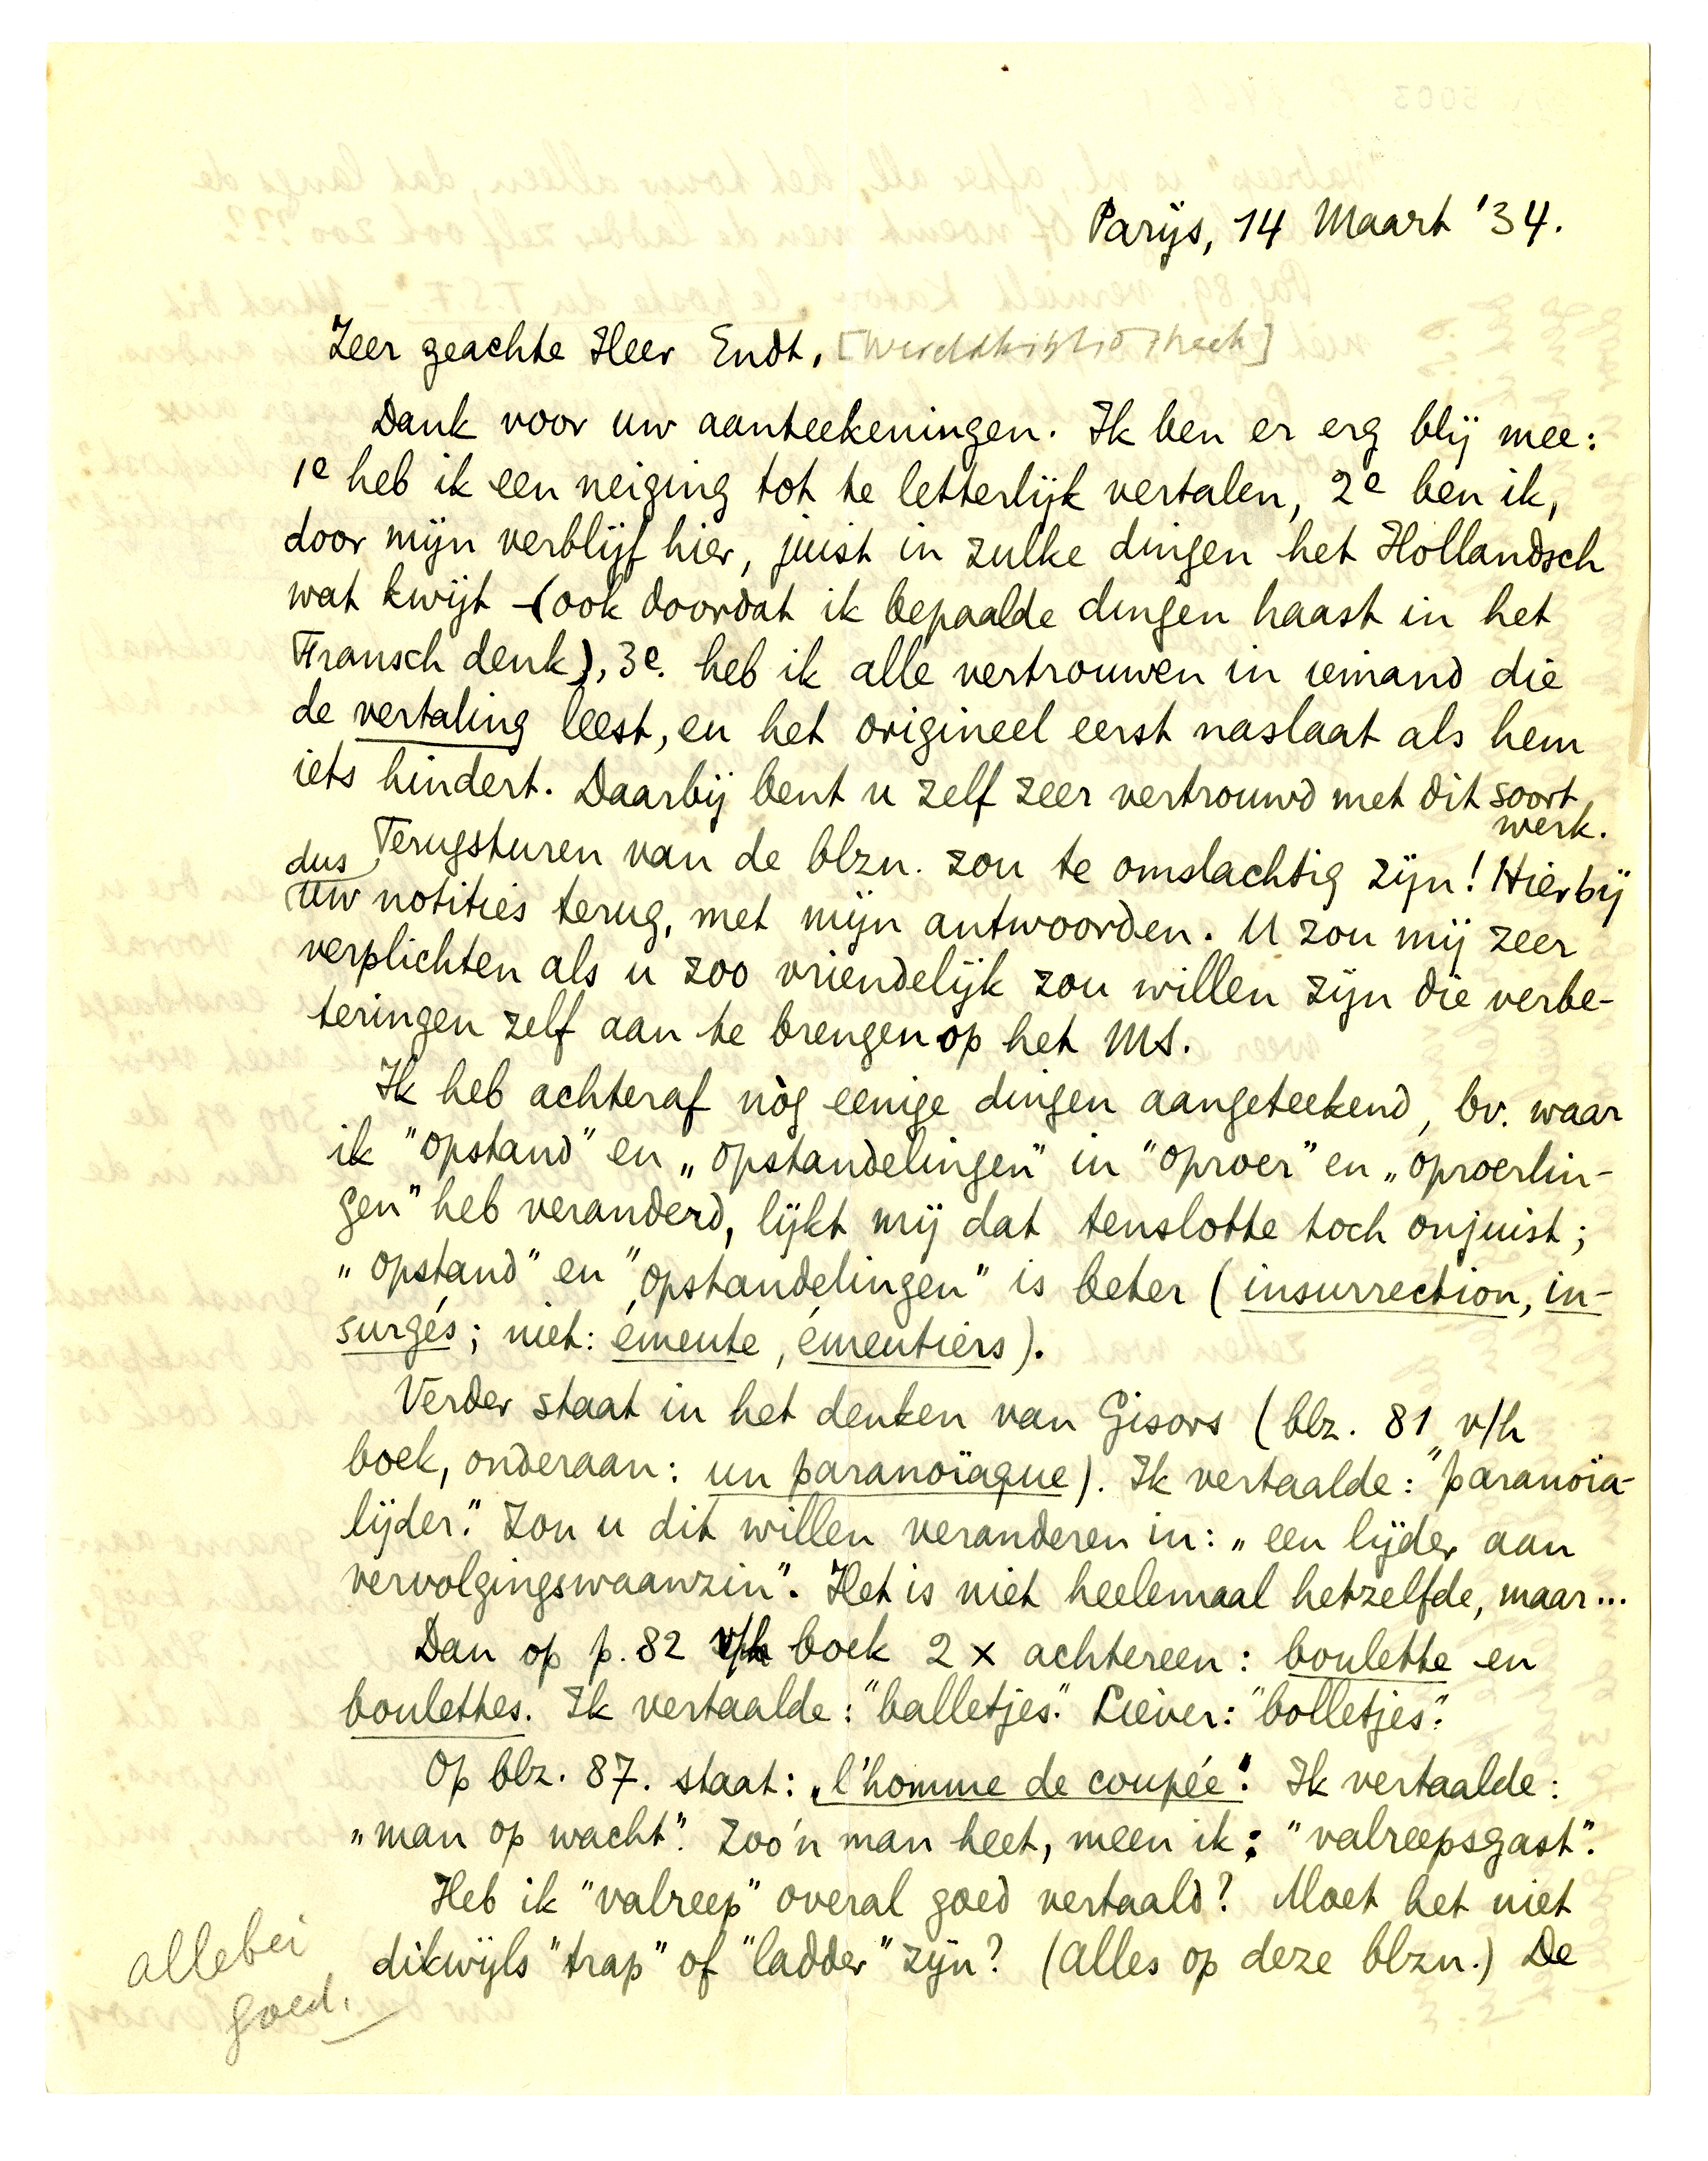 Parijs, 14 Maart '34.
Zeer geachte Heer Endt, [Wereldbibliotheek]
Dank voor uw aanteekeningen. Ik ben er erg blij mee:
1e heb ik een neiging tot te letterlijk vertalen, 2e ben ik,
door mijn verblijf hier, juist in zulke dingen het Hollandsch
wat kwijt (ook doordat ik bepaalde dingen haast in het
Fransch denk), 3e. heb ik alle vertrouwen in iemand die
de vertaling leest, en het origineel eerst naslaat als hem
iets hindert. Daarbij bent u zelf zeer vertrouwd met dit soort
werk.
Terugsturen van de blzn. zou te omslachtig zijn! Hierbij
dus
uw notities terug, met mijn antwoorden. U zou mij zeer
verplichten als u zoo vriendelijk zou willen zijn die verbe-
teringen zelf aan te brengen op het MS.
Ik heb achteraf nòg eenige dingen aangeteekend, bv. waar
ik "opstand" en „opstandelingen" in "oproer" en „oproerlin-
gen" heb veranderd, lijkt mij dat tenslotte toch onjuist;
„opstand" en "opstandelingen" is beter (insurrection, in-
surgés; niet: émeute, émeutiers).
Verder staat in het denken van Gisors (blz. 81 v/h
boek, onderaan: un paranoïaque). Ik vertaalde: "paranoïa-
lijder." Zou u dit willen veranderen in: „een lijder aan
vervolgingswaanzin". Het is niet heelemaal hetzelfde, maar...
Dan op p. 82 v/h boek 2 x achtereen: boulette en
boulettes. Ik vertaalde: "balletjes." Liever: "bolletjes".
Op blz. 87. staat: „l'homme de coupée". Ik vertaalde:
„man op wacht". Zoo'n man heet, meen ik: "valreepsgast".
Heb ik "valreep" overal goed vertaald? Moet het niet
dikwijls "trap" of "ladder" zijn? (Alles op deze blzn.) De
allebei
goed.